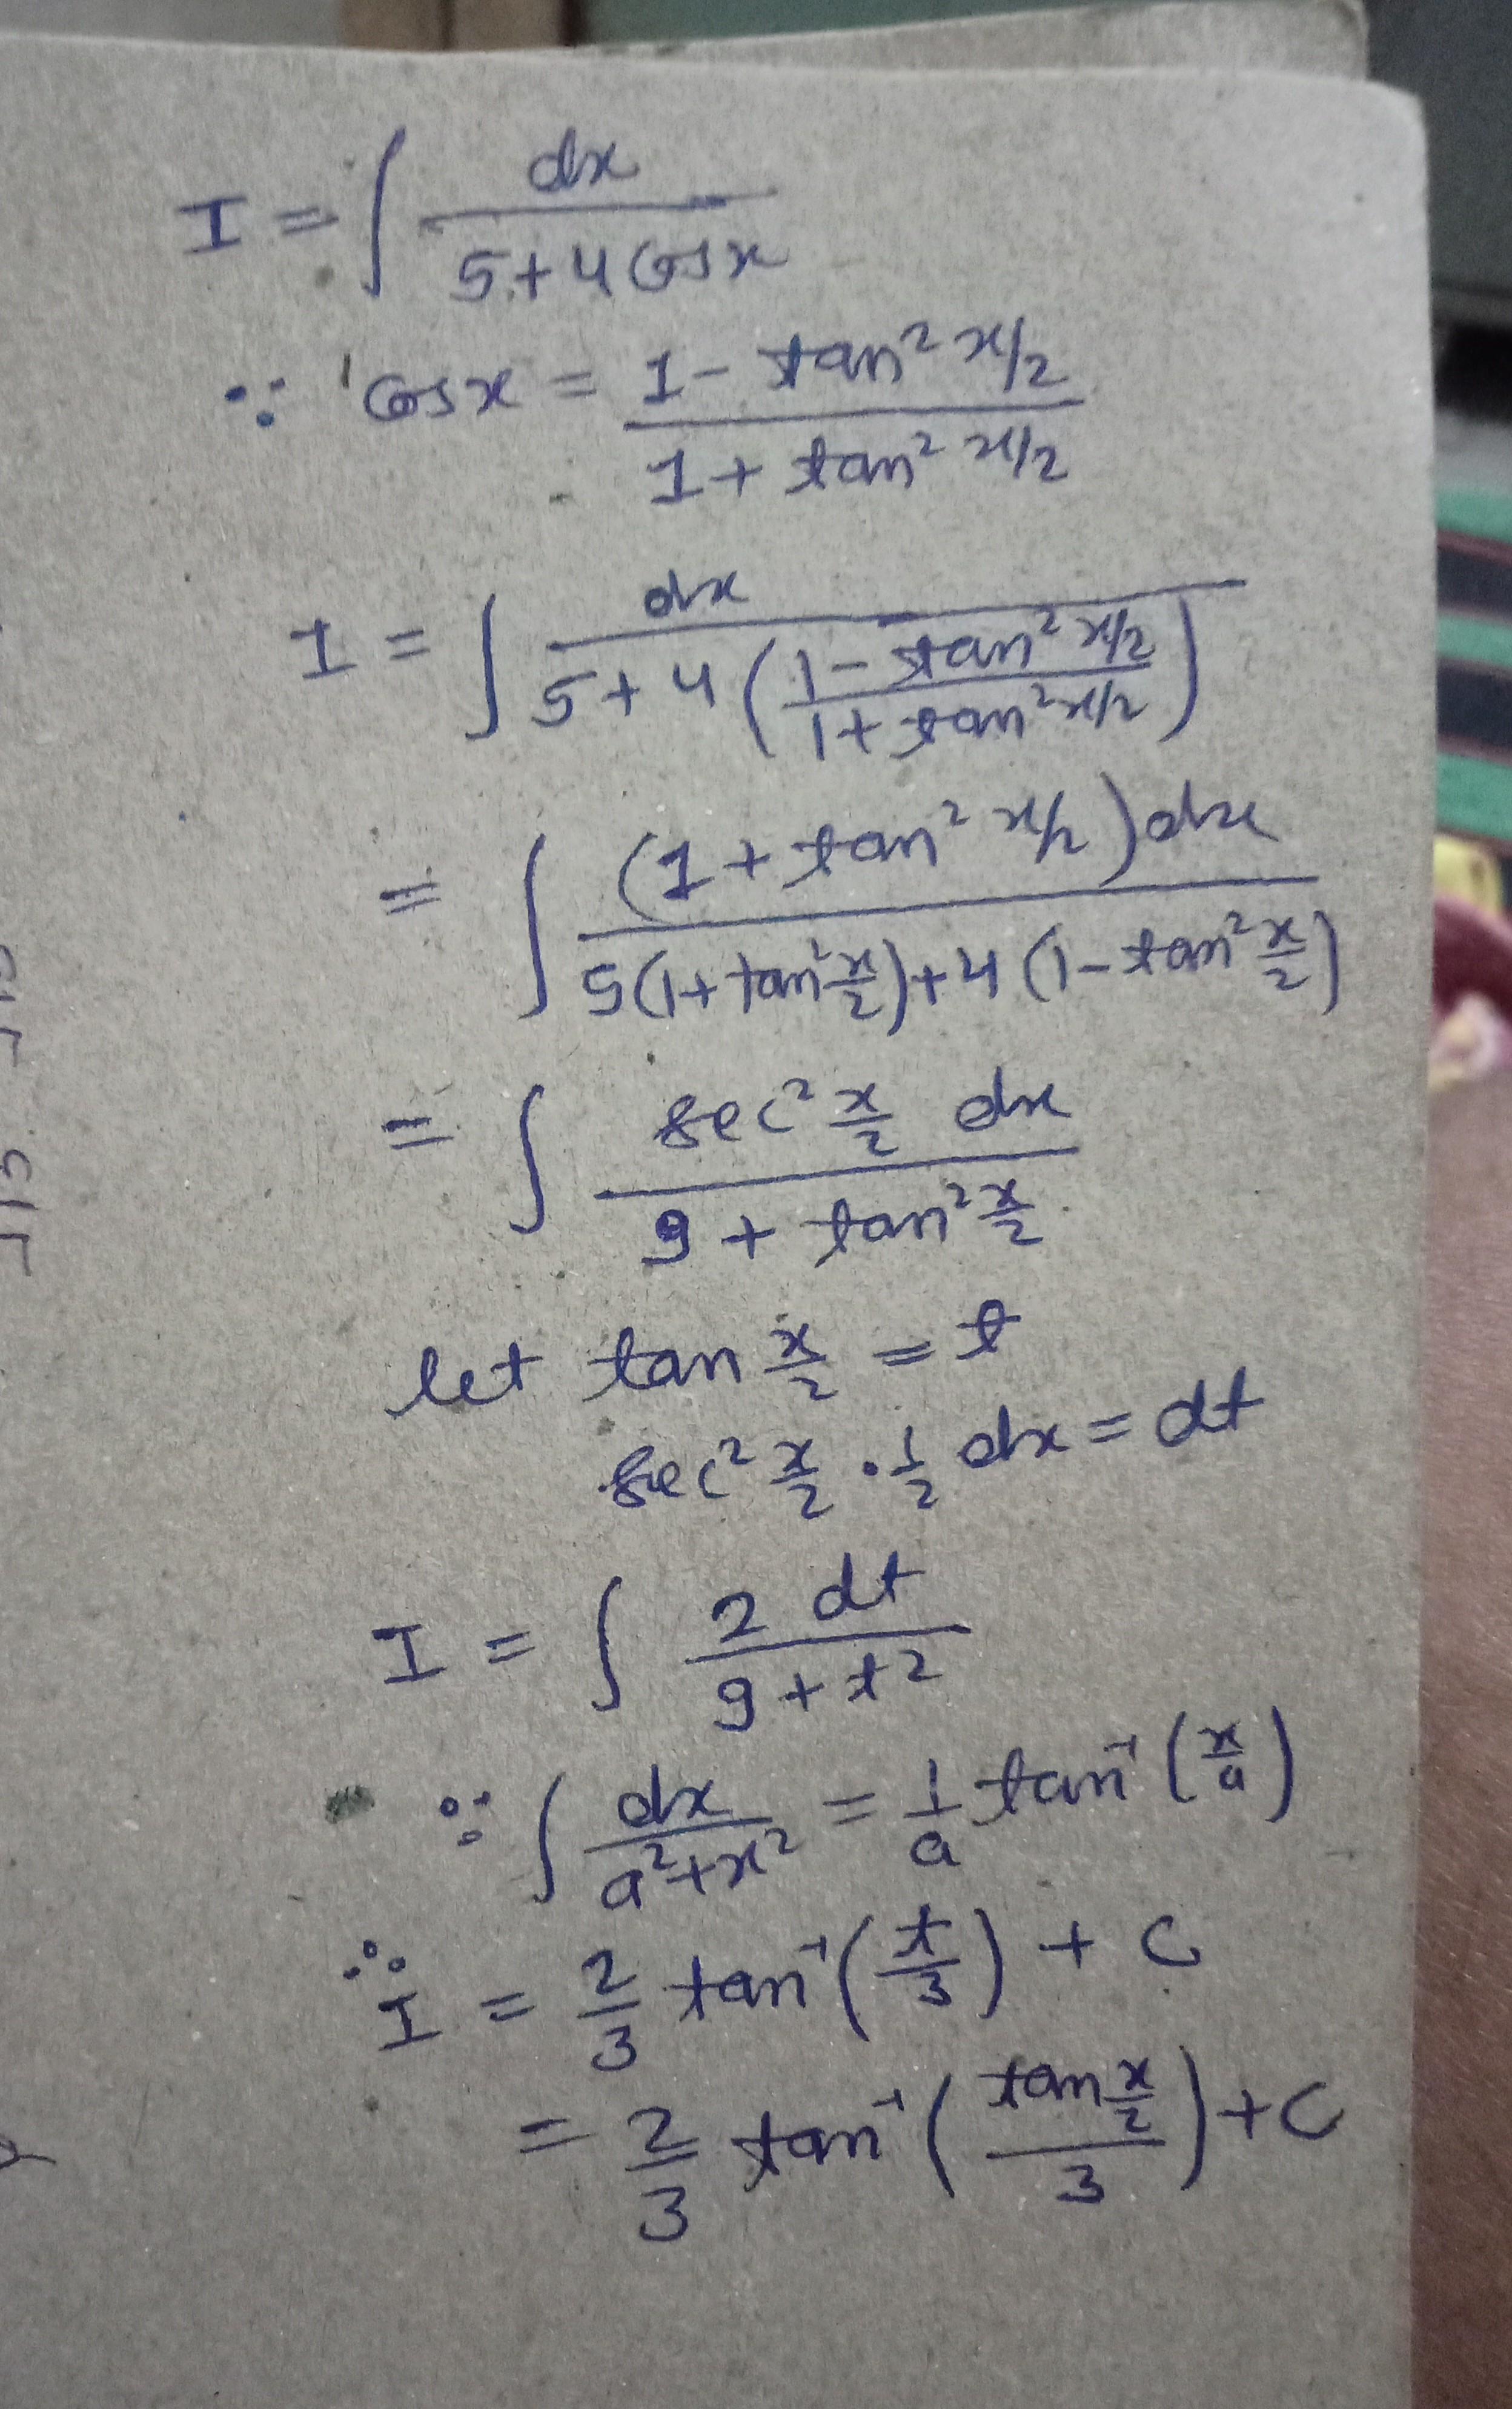 I = ∫ dx / (5 + 4 cos x)
∵ cos x = (1 - tan² x/2) / (1 + tan² x/2)
I = ∫ dx / (5 + 4 ((1 - tan² x/2) / (1 + tan² x/2)))
= ∫ (1 + tan² x/2) dx / (5(1 + tan² x/2) + 4(1 - tan² x/2))
= ∫ sec² x/2 dx / (9 + tan² x/2)
let tan x/2 = t
sec² x/2 · 1/2 dx = dt
I = ∫ 2 dt / (9 + t²)
∵ ∫ dx / (a² + x²) = 1/a tan⁻¹ (x/a)
∴ I = 2/3 tan⁻¹ (t/3) + C
= 2/3 tan⁻¹ ((tan x/2) / 3) + C